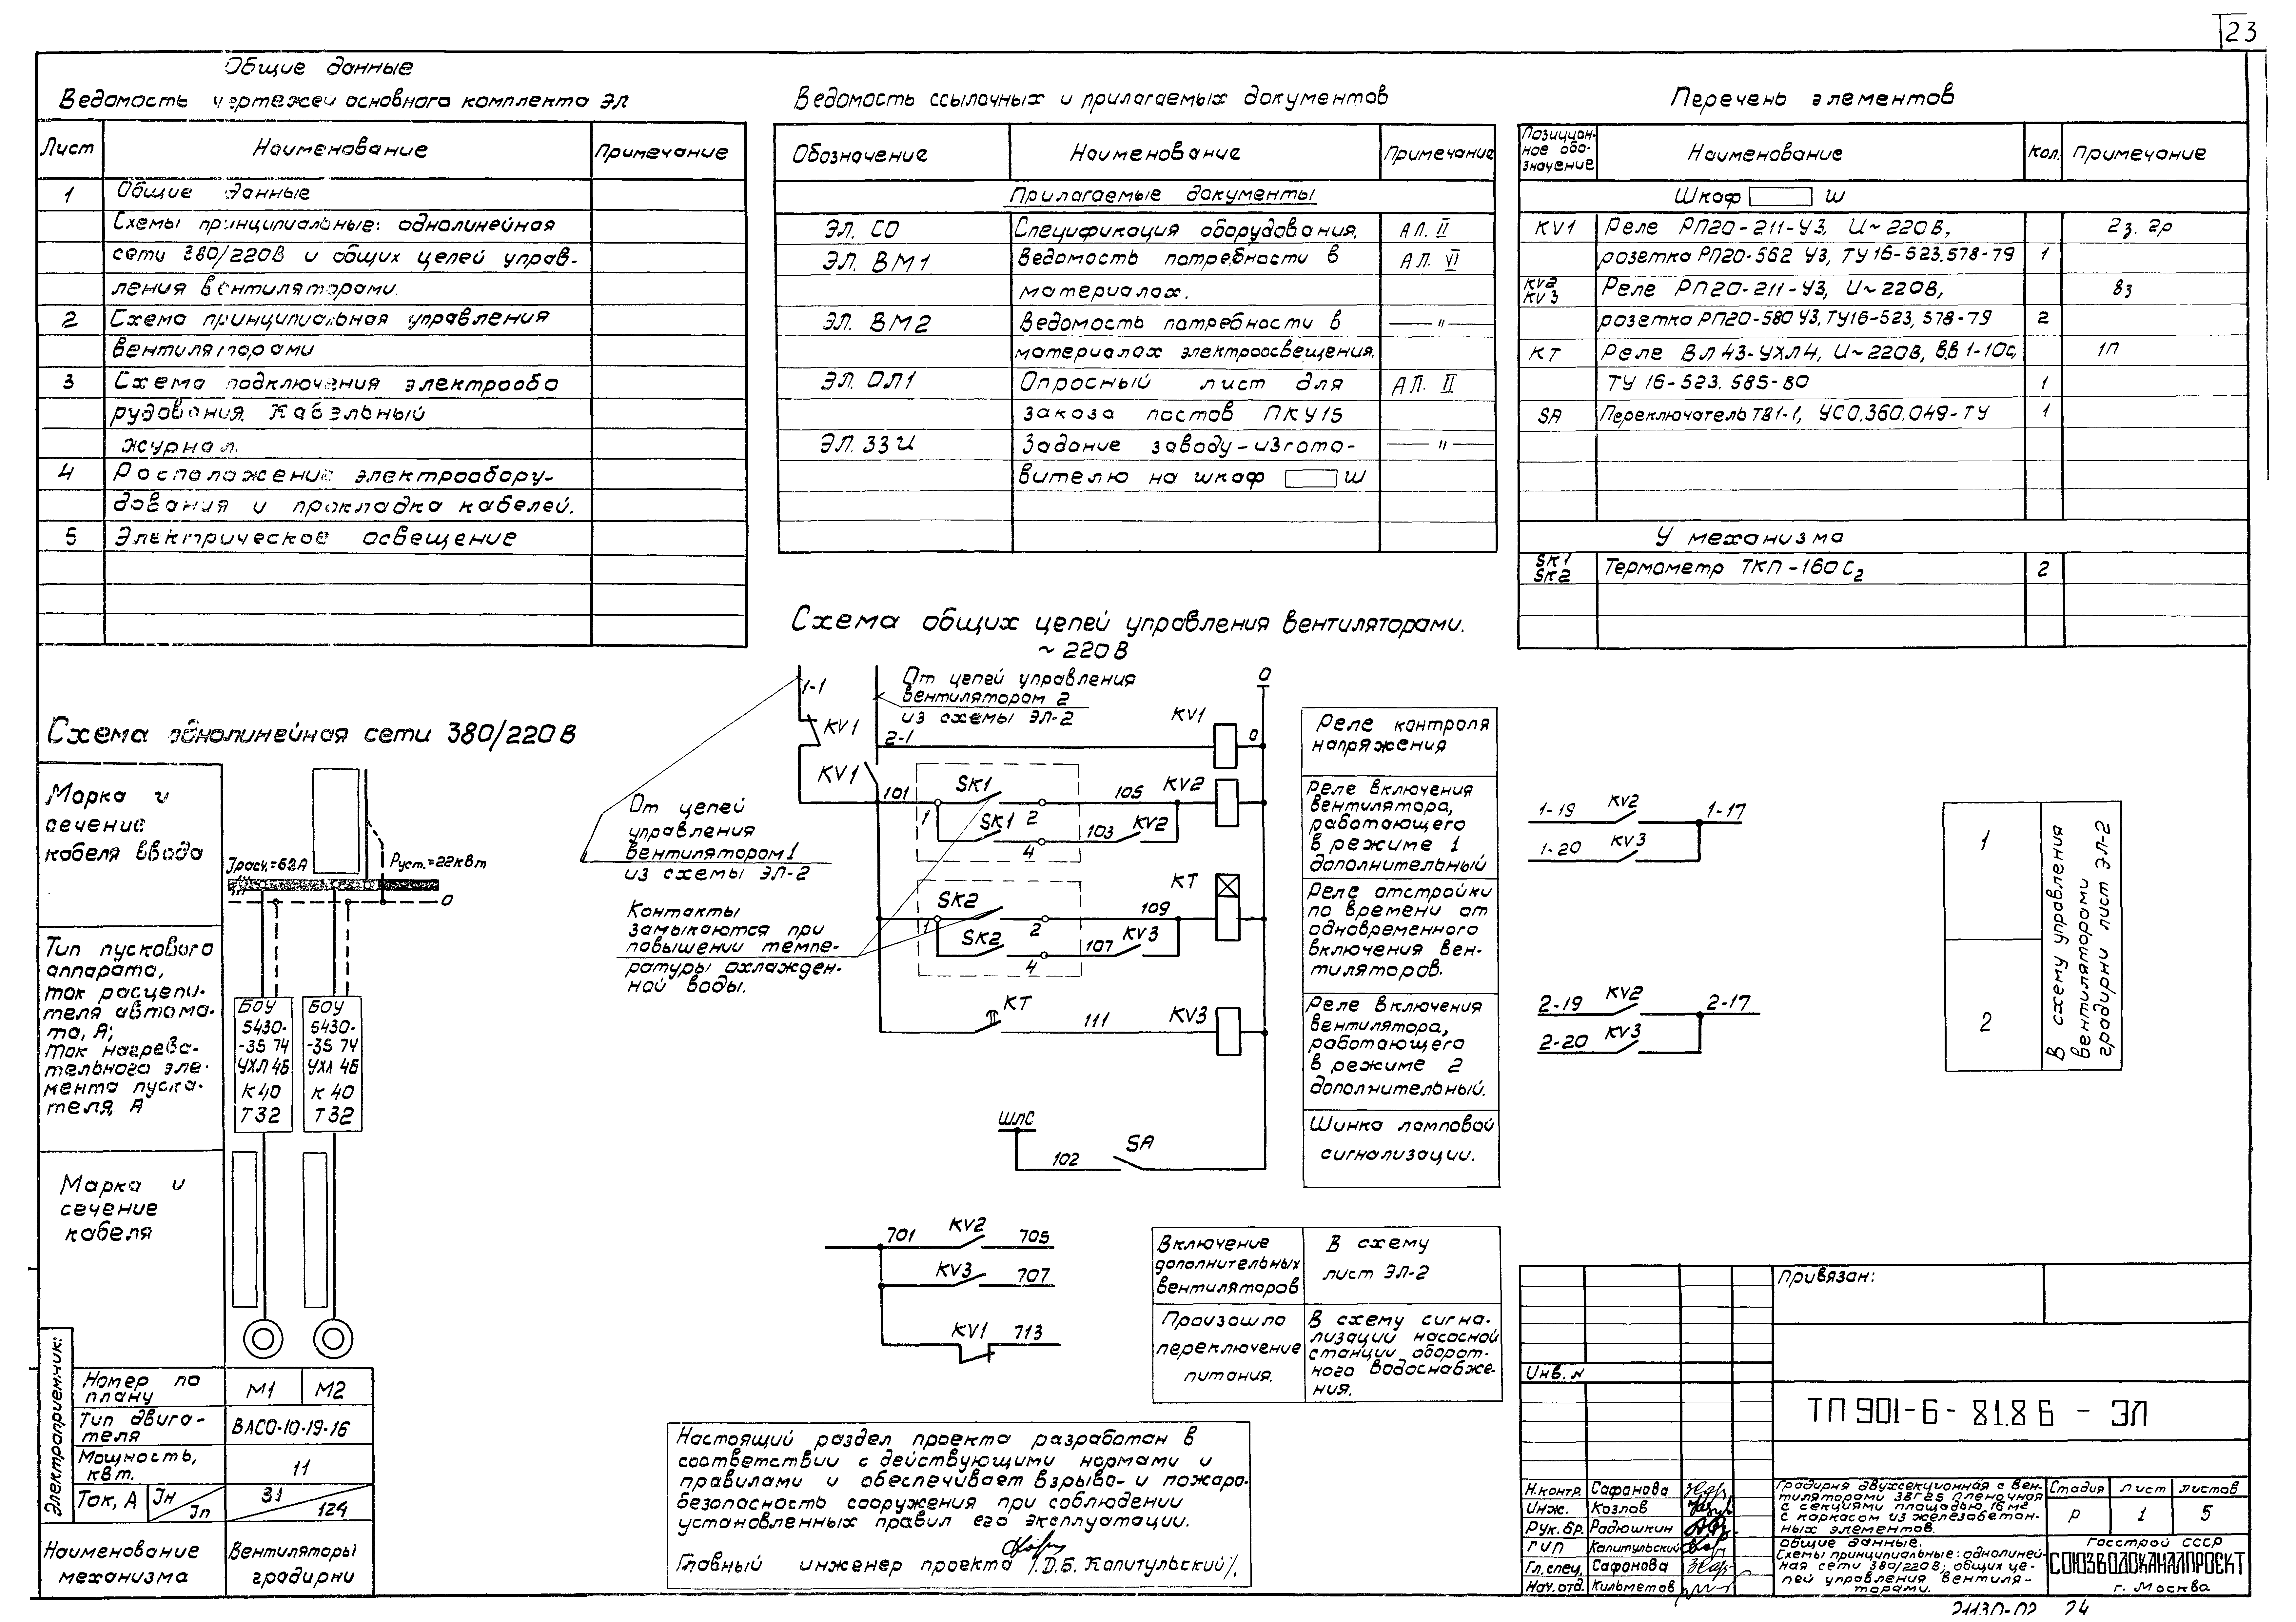 23
Общие данные
Ведомость чертежей основного комплекта ЭЛ
Лист Наименование Примечание
1 Общие данные
Схемы принципиальные: однолинейная
сети 380/220В и общих цепей управ-
ления вентиляторами.
2 Схема принципиальная управления
вентиляторами
3 Схема подключения электрообо
рудования. Кабельный
журнал.
4 Расположение электрообору-
дования и прокладка кабелей.
5 Электрическое освещение
Ведомость ссылочных и прилагаемых документов
Обозначение Наименование Примечание
Прилагаемые документы
ЭЛ. СО Спецификация оборудования. АЛ. II
ЭЛ. ВМ1 Ведомость потребности в АЛ. VI
материалах.
ЭЛ. ВМ2 Ведомость потребности в — " —
материалах электроосвещения.
ЭЛ. ОЛ1 Опросный лист для АЛ. II
заказа постов ПКУ15
ЭЛ. ЗЗИ Задание заводу-изгото- — " —
вителю на шкаф Ш
Перечень элементов
Позицион-
ное обо-
значение Наименование Кол. Примечание
Шкаф Ш
KV1 Реле РП20-211-У3, U~220В, 2з. 2р
розетка РП20-562 У3, ТУ16-523.578-79 1
KV2
KV3 Реле РП20-211-У3, U~220В, 8з
розетка РП20-580 У3, ТУ16-523, 578-79 2
KT Реле ВЛ43-УХЛ4, U~220В, ВВ 1-10с, 1П
ТУ 16-523. 585-80 1
SA Переключатель ТВ1-1, УСО.360.049-ТУ 1
У механизма
SK1
SK2 Термометр ТКП-160С2 2
Схема однолинейная сети 380/220В
Марка и
сечение
кабеля ввода
Iрасч.=62А
Руст.=22кВт
0
Тип пускового
аппарата,
ток расцепи-
теля автома-
та, А;
Ток нагрева-
тельного эле-
мента пуска-
теля, А
БОУ БОУ
5430- 5430-
-3574 -3574
УХЛ 4Б УХЛ 4Б
К40 К40
Т32 Т32
Марка и
сечение
кабеля
Электроприемник:
Номер по
плану М1 М2
Тип двига-
теля ВАСО-10-19-16
Мощность,
кВт. 11
Ток, А Iн Iп 31 124
Наименование
механизма
Вентиляторы
градирни
Схема общих цепей управления вентиляторами.
~220В
1-1
От цепей управления
вентилятором 2
из схемы ЭЛ-2
0
KV1 2-1 KV1 0
KV1
101 SK1 105 KV2
1 SK1 2 103 KV2
4
SK2 109 KT
1 SK2 2 107 KV3
4
KT 111 KV3
ШЛС
102 SA
От цепей
управления
вентилятором 1
из схемы ЭЛ-2
Контакты
замыкаются при
повышении темпе-
ратуры охлажден-
ной воды.
Реле контроля
напряжения
Реле включения
вентилятора,
работающего
в режиме 1
дополнительный
Реле отстройки
по времени от
одновременного
включения вен-
тиляторов.
Реле включения
вентилятора,
работающего
в режиме 2
дополнительный.
Шинка ламповой
сигнализации.
1-19 KV2 1-17
1-20 KV3
2-19 KV2 2-17
2-20 KV3
1
2
В схему управления
вентиляторами
градирни лист ЭЛ-2
701 KV2 705
KV3 707
KV1 713
Включение
дополнительных
вентиляторов
В схему
лист ЭЛ-2
Произошло
переключение
питания.
В схему сигна-
лизации насосной
станции оборот-
ного водоснабже-
ния.
Настоящий раздел проекта разработан в
соответствии с действующими нормами и
правилами и обеспечивает взрыво- и пожаро-
безопасность сооружения при соблюдении
установленных правил его эксплуатации.
Главный инженер проекта /Д.Б. Капитульский/.
Привязан:
Инв. N
ТП 901-6-81.86 - ЭЛ
Н.контр. Сафонова
Инж. Козлов
Рук. бр. Радюшкин
ГИП Капитульский
Гл. спец. Сафонова
Нач. отд. Кильметов
Градирня двухсекционная с вен-
тиляторами 3ВГ25 пленочная
с секциями площадью 16 м2
с каркасом из железобетон-
ных элементов.
Стадия Лист Листов
Р 1 5
Общие данные.
Схемы принципиальные: однолиней-
ная сети 380/220В; общих це-
пей управления вентиля-
торами.
Госстрой СССР
СОЮЗВОДОКАНАЛПРОЕКТ
г. Москва
21130-02 24